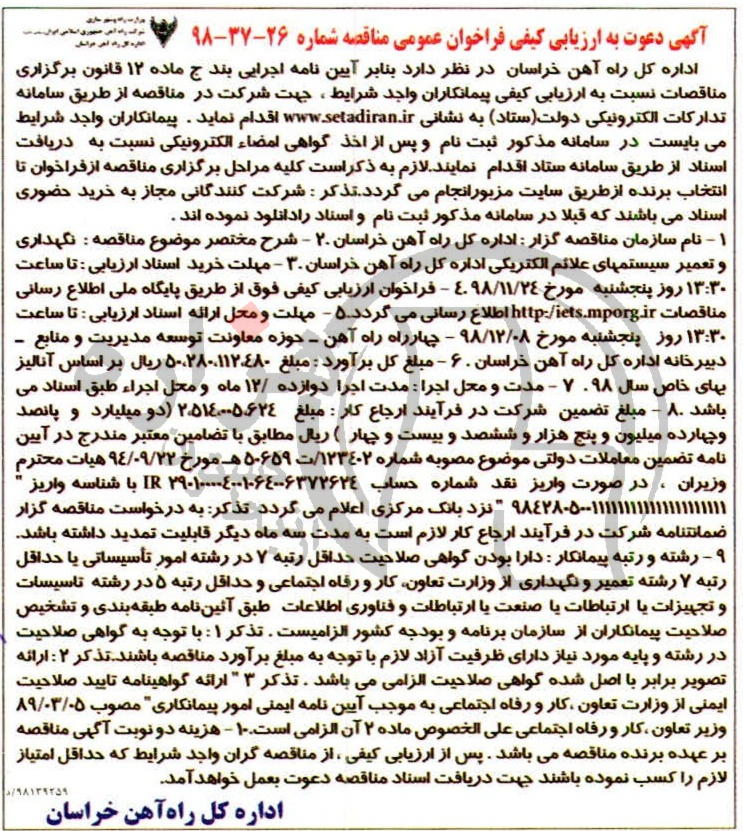 وزارت راه و شهر سازی
شرکت راه آهن جمهوری اسلامی ایران
اداره کل راه آهن خراسان
آگهی دعوت به ارزیابی کیفی فراخوان عمومی مناقصه شماره ۲۶-۳۷-۹۸
اداره کل راه آهن خراسان در نظر دارد بنابر آیین نامه اجرایی بند ج ماده ۱۲ قانون برگزاری
مناقصات نسبت به ارزیابی کیفی پیمانکاران واجد شرایط ، جهت شرکت در مناقصه از طریق سامانه
تدارکات الکترونیکی دولت(ستاد) به نشانی www.setadiran.ir اقدام نماید . پیمانکاران واجد شرایط
می بایست در سامانه مذکور ثبت نام و پس از اخذ گواهی امضاء الکترونیکی نسبت به دریافت
اسناد از طریق سامانه ستاد اقدام نمایند.لازم به ذکراست کلیه مراحل برگزاری مناقصه ازفراخوان تا
انتخاب برنده ازطریق سایت مزبورانجام می گردد.تذکر : شرکت کنندگانی مجاز به خرید حضوری
اسناد می باشند که قبلا در سامانه مذکور ثبت نام و اسناد رادانلود نموده اند .
۱- نام سازمان مناقصه گزار : اداره کل راه آهن خراسان .۲- شرح مختصر موضوع مناقصه : نگهداری
و تعمیر سیستمهای علائم الکتریکی اداره کل راه آهن خراسان .۳- مهلت خرید اسناد ارزیابی : تا ساعت
۱۳:۳۰ روز پنجشنبه مورخ ۹۸/۱۱/۲۴ .۴- فراخوان ارزیابی کیفی فوق از طریق پایگاه ملی اطلاع رسانی
مناقصات http:/iets.mporg.ir اطلاع رسانی می گردد.۵- مهلت و محل ارائه اسناد ارزیابی : تا ساعت
۱۳:۳۰ روز پنجشنبه مورخ ۹۸/۱۲/۰۸ - چهارراه راه آهن – حوزه معاونت توسعه مدیریت و منابع –
دبیرخانه اداره کل راه آهن خراسان . ۶- مبلغ کل برآورد : مبلغ ۵۰.۲۸۰.۱۱۲.۴۸۰ ریال بر اساس آنالیز
بهای خاص سال ۹۸ . ۷- مدت و محل اجرا : مدت اجرا دوازده /۱۲ ماه و محل اجراء طبق اسناد می
باشد .۸- مبلغ تضمین شرکت در فرآیند ارجاع کار : مبلغ ۲.۵۱۴.۰۰۵.۶۲۴ (دو میلیارد و پانصد
وچهارده میلیون و پنج هزار و ششصد و بیست و چهار ) ریال مطابق با تضامین معتبر مندرج در آیین
نامه تضمین معاملات دولتی موضوع مصوبه شماره ۱۲۳۴۰۲/ت ۵۰۶۵۹ هـ مورخ ۹۴/۰۹/۲۲ هیات محترم
وزیران ، در صورت واریز نقد شماره حساب IR ۲۹۰۱۰۰۰۰۴۰۰۱۰۶۴۰۰۶۳۷۲۶۲۴ با شناسه واریز "
" نزد بانک مرکزی اعلام می گردد تذکر: به درخواست مناقصه گزار
ضمانتنامه شرکت در فرآیند ارجاع کار لازم است به مدت سه ماه دیگر قابلیت تمدید داشته باشد.
۹- رشته و رتبه پیمانکار : دارا بودن گواهی صلاحیت حداقل رتبه ۷ در رشته امور تأسیساتی یا حداقل
رتبه ۷ رشته تعمیر و نگهداری از وزارت تعاون، کار و رفاه اجتماعی و حداقل رتبه ۵ در رشته تاسیسات
و تجهیزات یا ارتباطات یا صنعت یا ارتباطات و فناوری اطلاعات طبق آئین‌نامه طبقه‌بندی و تشخیص
صلاحیت پیمانکاران از سازمان برنامه و بودجه کشور الزامیست . تذکر ۱ : با توجه به گواهی صلاحیت
در رشته و پایه مورد نیاز دارای ظرفیت آزاد لازم با توجه به مبلغ برآورد مناقصه باشند.تذکر ۲ : ارائه
تصویر برابر با اصل شده گواهی صلاحیت الزامی می باشد . تذکر ۳ " ارائه گواهینامه تایید صلاحیت
ایمنی از وزارت تعاون ،کار و رفاه اجتماعی به موجب آیین نامه ایمنی امور پیمانکاری" مصوب ۸۹/۰۳/۰۵
وزیر تعاون ،کار و رفاه اجتماعی علی الخصوص ماده ۲ آن الزامی است.۱۰- هزینه دو نوبت آگهی مناقصه
بر عهده برنده مناقصه می باشد . پس از ارزیابی کیفی ، از مناقصه گران واجد شرایط که حداقل امتیاز
لازم را کسب نموده باشند جهت دریافت اسناد مناقصه دعوت بعمل خواهدآمد.
۹۸۱۳۹۲۵۹/د
اداره کل راه‌آهن خراسان